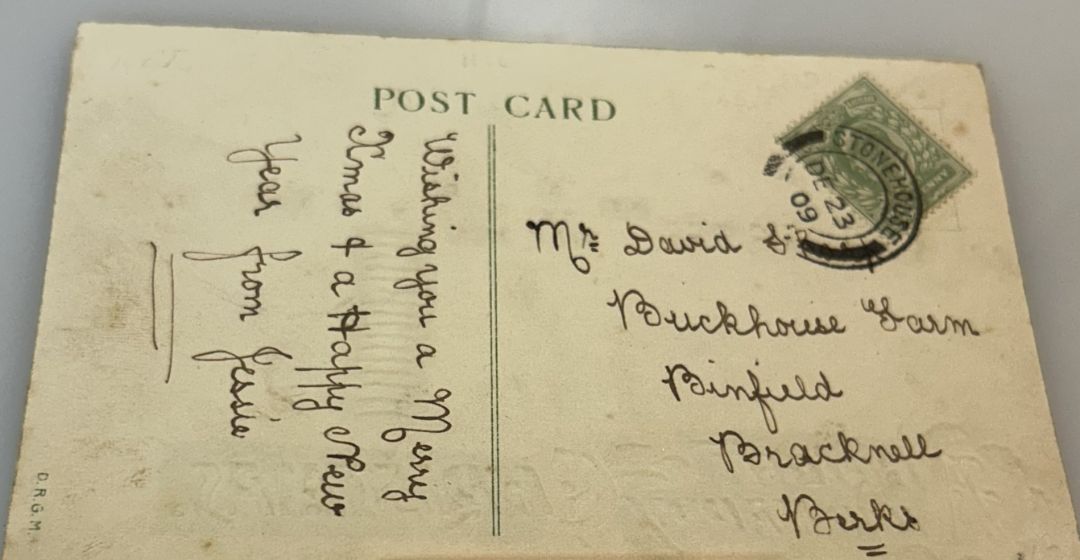 POST CARD
Wishing you a Merry
Xmas & a Happy New
Year from Jessie
STONEHOUSE
DE 23
09
Mr David
Buckhouse Farm
Binfield
Bracknell
Berks
D.R.G.M.